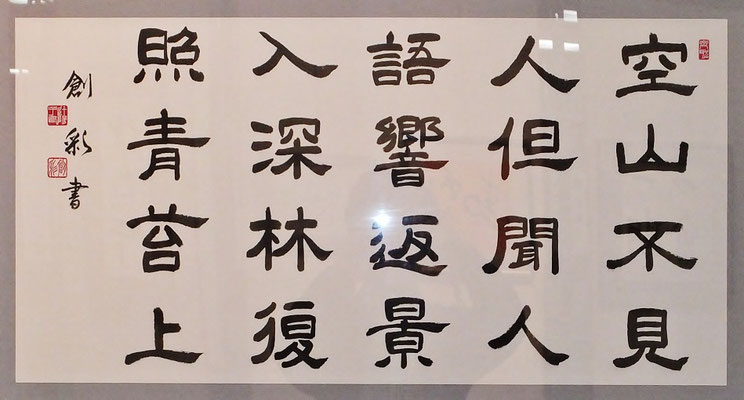 空山不見
人但聞人
語響返景
入深林復
照青苔上
創彩書